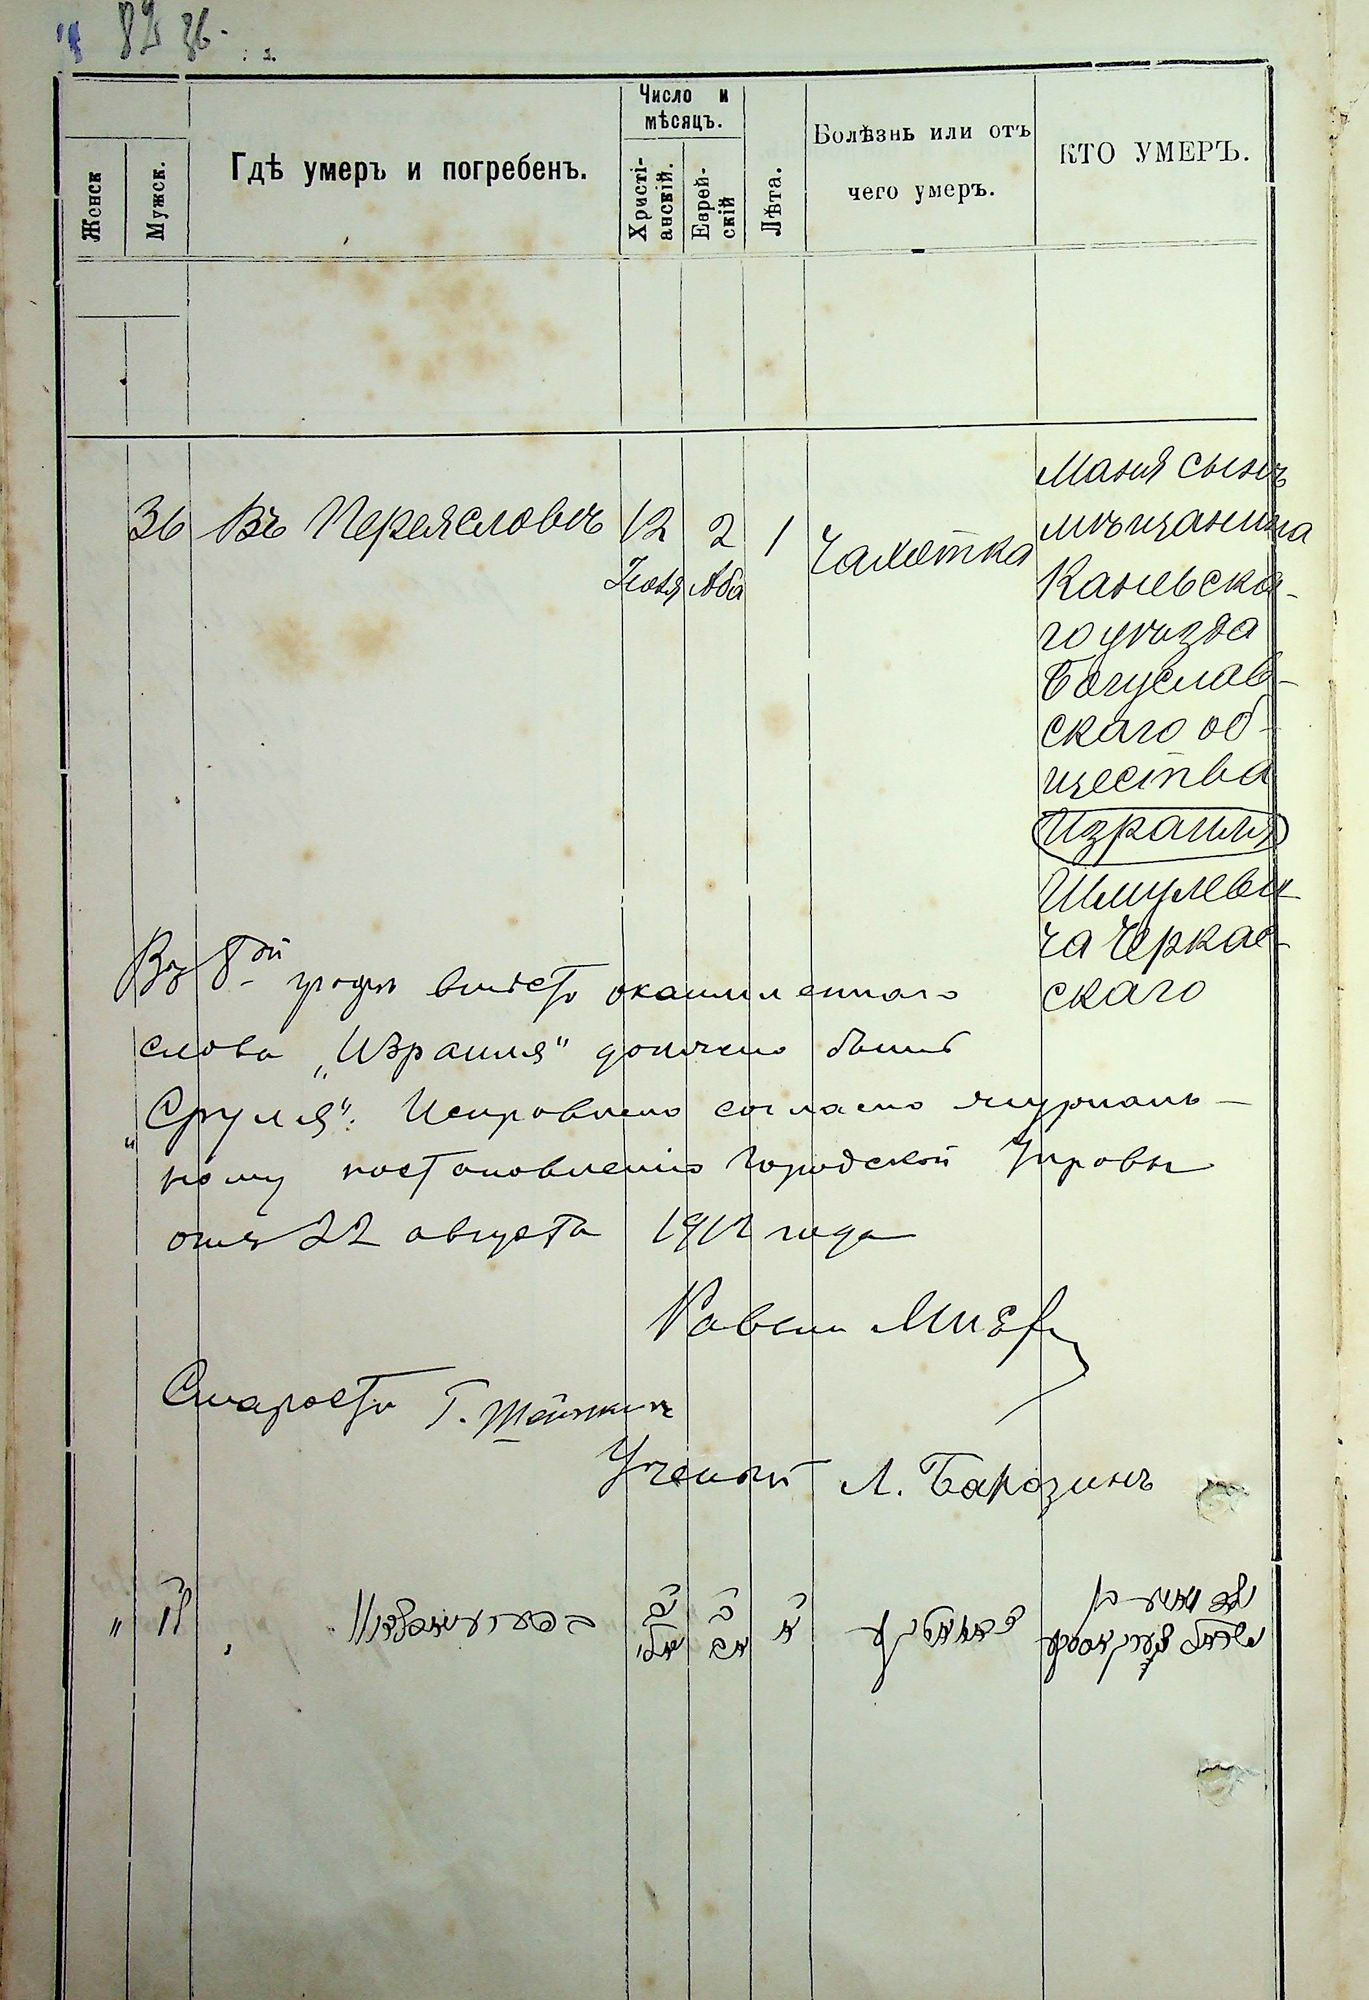 82 36
Женск
Мужск.
Гдѣ умеръ и погребенъ.
Число и
мѣсяцъ.
Христі-
анскій.
Еврей-
скій
Лѣта.
Болѣзнь или отъ
чего умеръ.
КТО УМЕРЪ.
36 Въ Переясловѣ 12 2 1 Чахотка
Іюля Аба
Маня сынъ
мѣщанина
Каневска-
го уѣзда
Богуслав-
скаго об-
щества
Израиля
Шмулеви-
ча Черкас-
скаго
Въ 8ой графѣ вмѣсто окаймленнаго
слова „Израиля" должно быть
„Сруля". Исправлено согласно журналь-
ному постановленію Городской Управы
отъ 22 августа 1912 года
Равви
Староста Г.
Ученый Л. Барозинъ